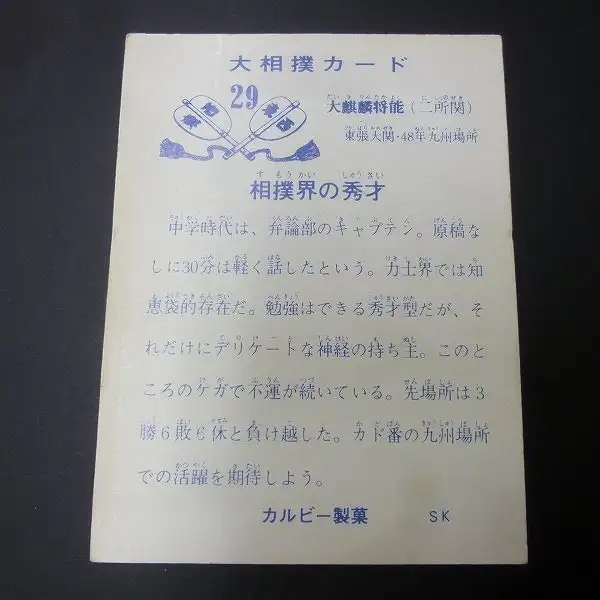 大相撲カード
29
大麒麟将能(二所関)
東張大関・48年九州場所
相撲界の秀才
中学時代は、弁論部のキャプテン。原稿な
しに30分は軽く話したという。力士界では知
恵袋的存在だ。勉強はできる秀才型だが、そ
れだけにデリケートな神経の持ち主。このと
ころのケガで不運が続いている。先場所は3
勝6敗6休と負け越した。カド番の九州場所
での活躍を期待しよう。
カルビー製菓 SK